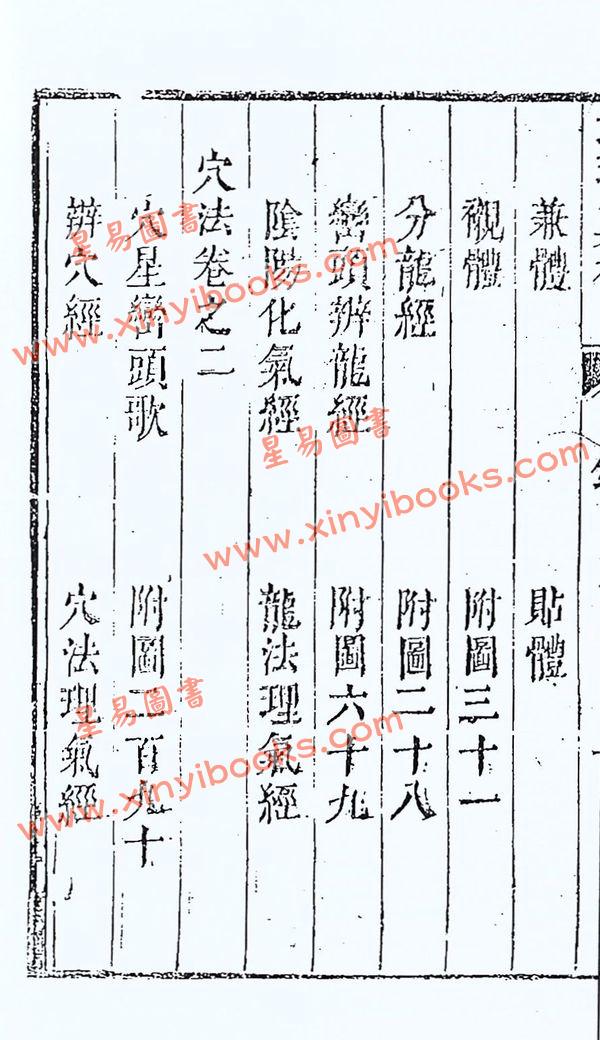 兼體 貼體
襯體 附圖三十一
分龍經 附圖二十八
巒頭辨龍經 附圖六十九
陰陽化氣經 龍法理氣經
穴法卷之二
穴星巒頭歌 附圖二百九十
辨穴經 穴法理氣經
星易圖書
www.xinyibooks.com
星易圖書
www.xinyibooks.com
星易圖書
www.xinyibooks.com